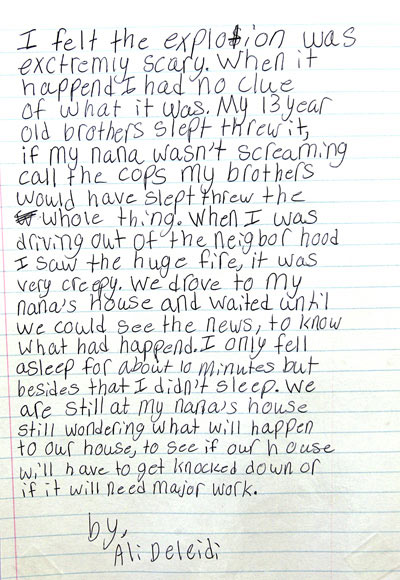 I felt the explosion was
exctremly scary. When it
happend I had no clue
of what it was. My 13 year
old brothers slept threw it,
if my nana wasn't screaming
call the cops my brothers
would have slept threw the
whole thing. When I was
driving out of the neigbor hood
I saw the huge fire, it was
very creepy. We drove to my
nana's House and waited until
we could see the news, to know
what had happend. I only fell
asleep for about 10 minutes but
besides that I didn't sleep. We
are still at my nana's house
still wondering what will happen
to our house, to see if our house
will have to get knocked down or
if it will need major work.
by,
Ali Deleidi